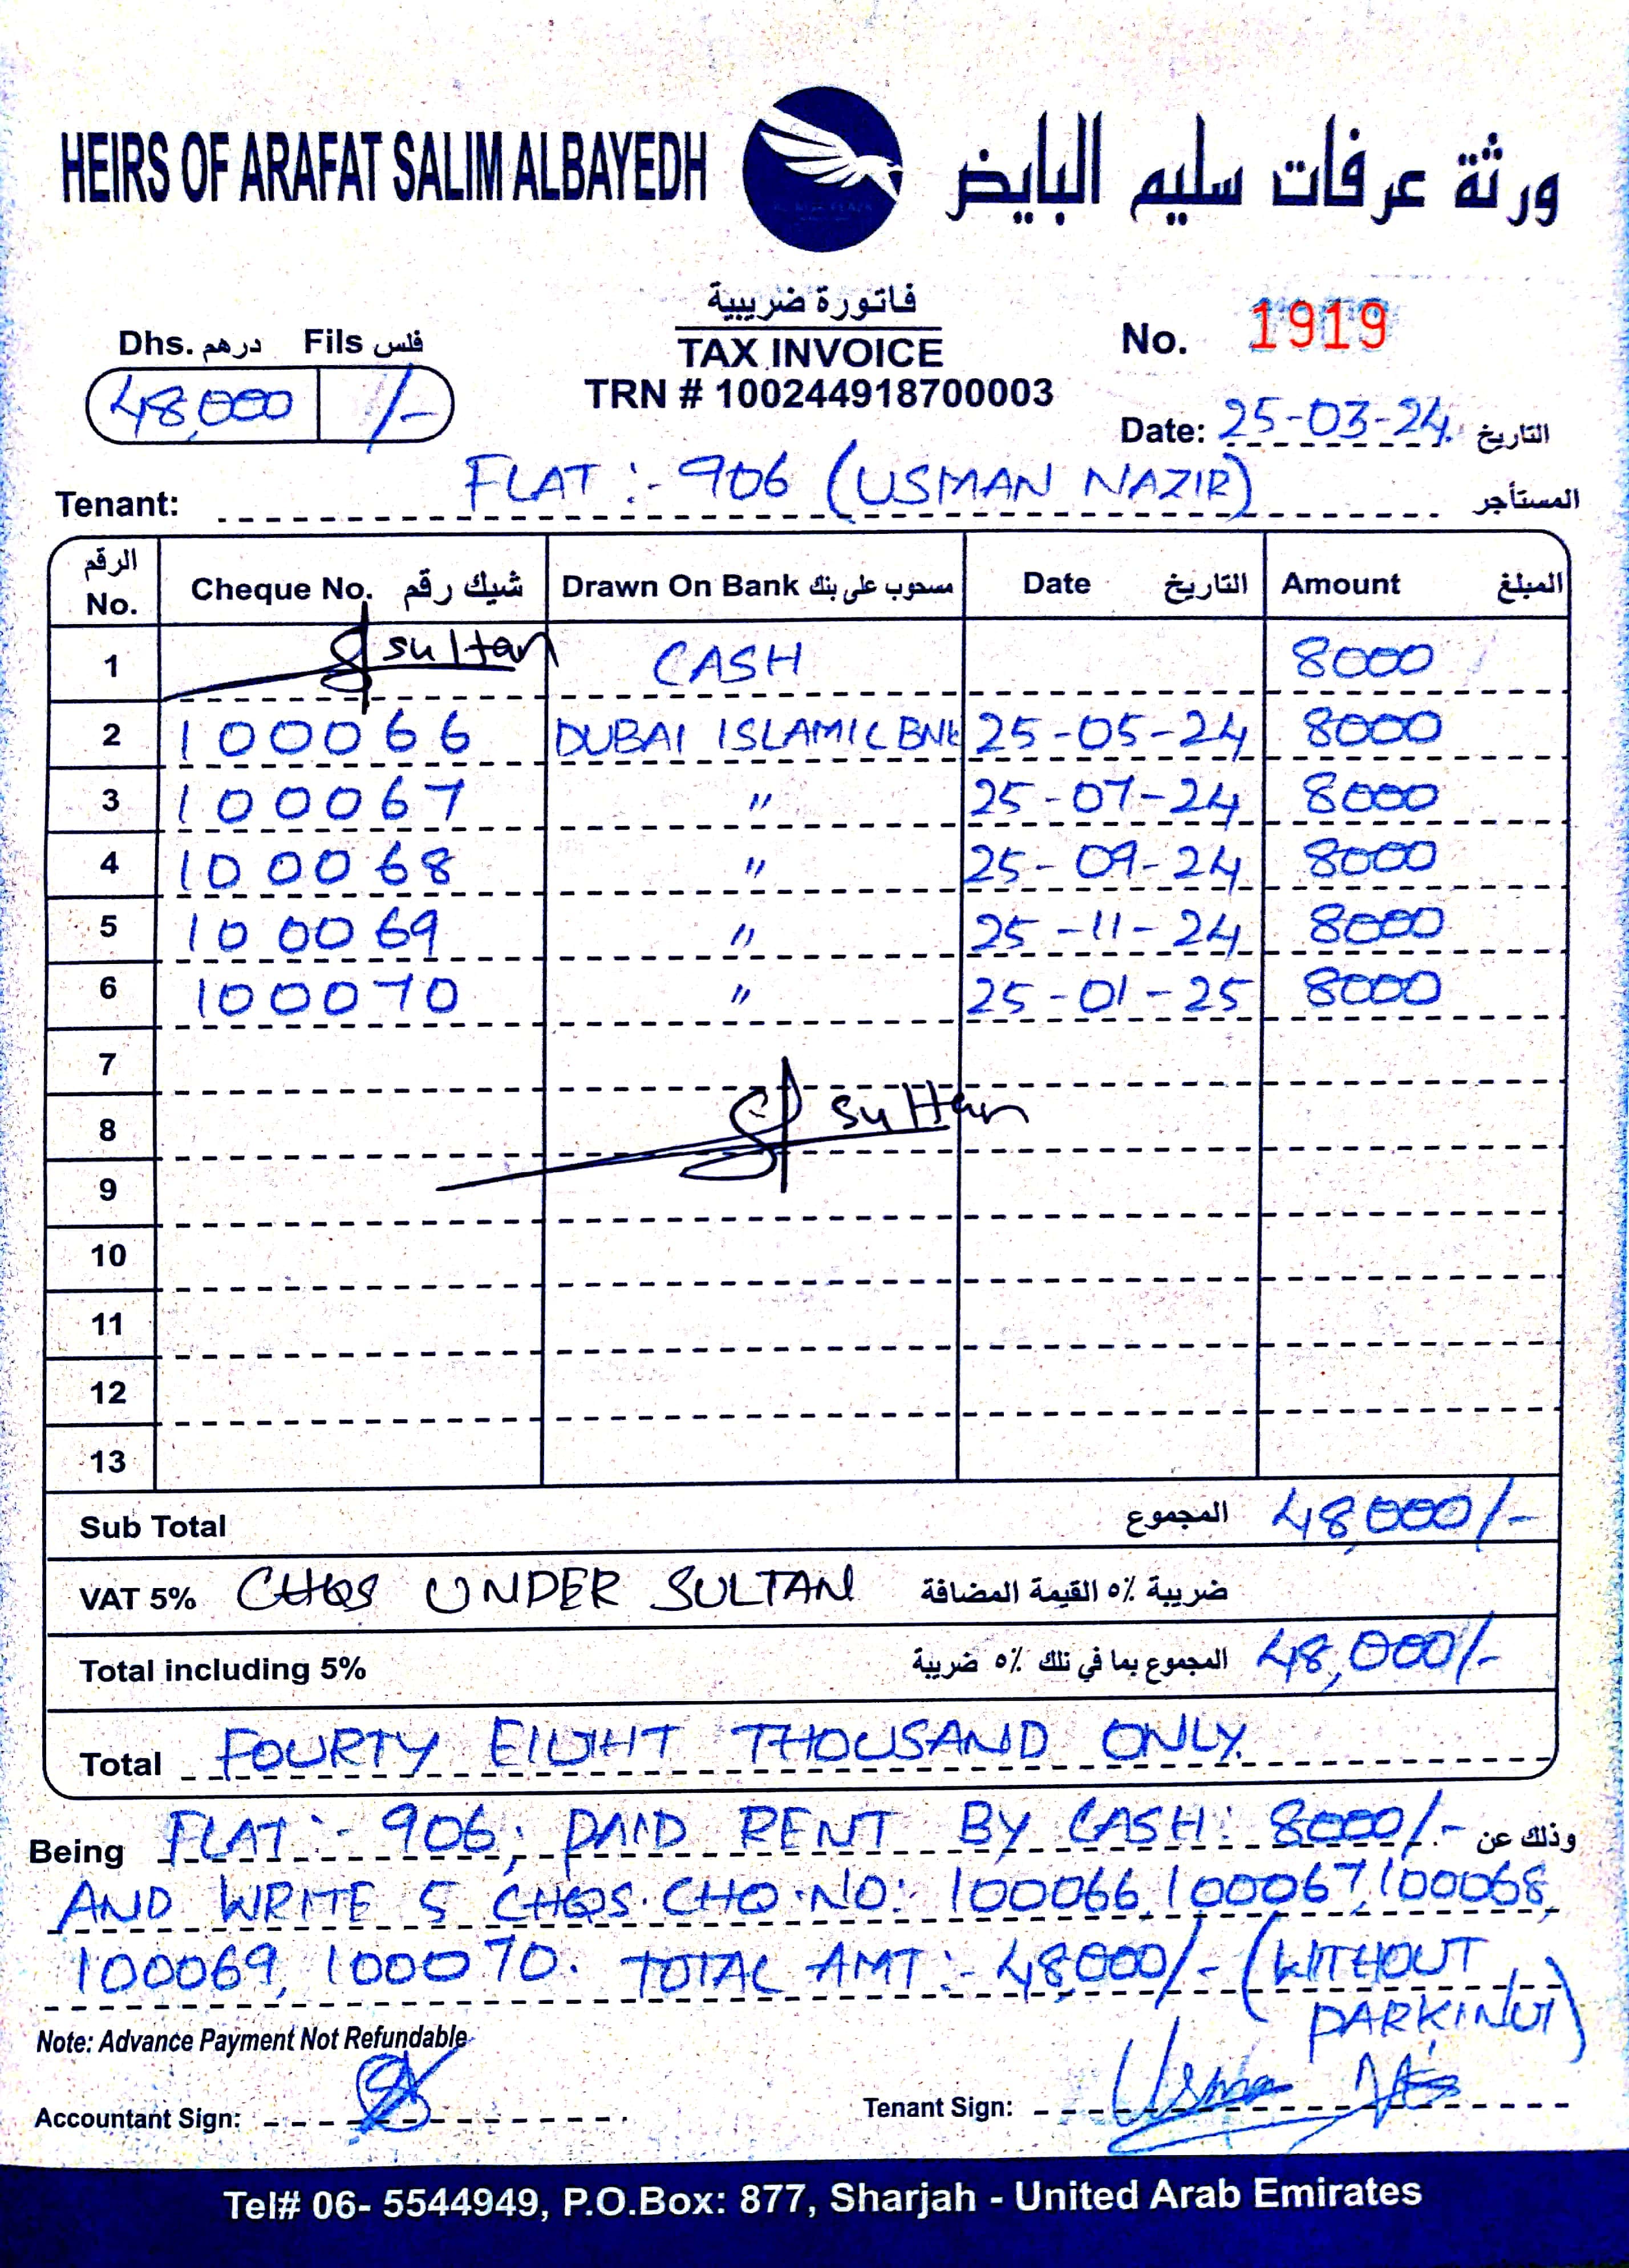 HEIRS OF ARAFAT SALIM ALBAYEDH
ورثة عرفات سليم البايض
فاتورة ضريبية
TAX INVOICE
TRN # 100244918700003
Dhs. درهم Fils فلس
48,000 /-
No. 1919
Date: 25-03-24 التاريخ
Tenant: FLAT :- 906 (USMAN NAZIR) المستأجر
الرقم No. Cheque No. شيك رقم Drawn On Bank مسحوب على بنك Date التاريخ Amount المبلغ
1 sultan CASH 8000
2 100066 DUBAI ISLAMIC BNK 25-05-24 8000
3 100067 " 25-07-24 8000
4 100068 " 25-09-24 8000
5 100069 " 25-11-24 8000
6 100070 " 25-01-25 8000
7
8 sultan
9
10
11
12
13
Sub Total المجموع 48,000/-
VAT 5% CHQS UNDER SULTAN ضريبة ٥٪ القيمة المضافة
Total including 5% المجموع بما في تلك ٥٪ ضريبة 48,000/-
Total FOURTY EIGHT THOUSAND ONLY.
Being FLAT :- 906, PAID RENT BY CASH: 8000/- وذلك عن
AND WRITE 5 CHQS. CHQ.NO: 100066, 100067, 100068,
100069, 100070. TOTAL AMT :- 48,000/- (WITHOUT
PARKING)
Note: Advance Payment Not Refundable
Accountant Sign:
Tenant Sign: Usman
Tel# 06- 5544949, P.O.Box: 877, Sharjah - United Arab Emirates